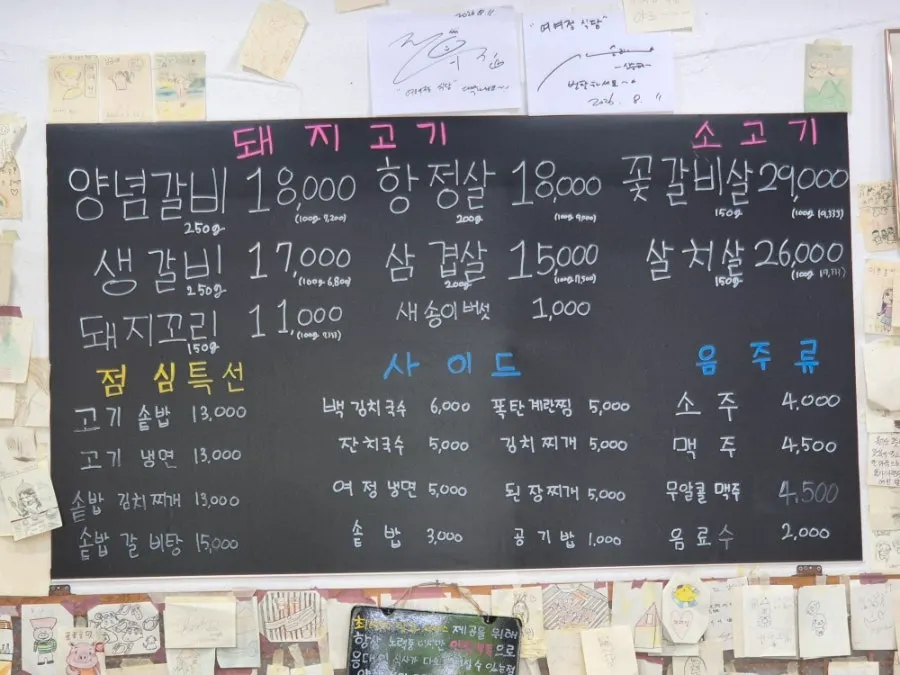 2026.8.11
"여여정 식당"
"여여정 식당" 대박나세요~
번창하세요~
2026. 8. 11
돼지고기
소고기
양념갈비 18,000
250g (100g 7,200)
항정살 18,000
200g (100g 9,000)
꽃갈비살 29,000
150g (100g 19,333)
생갈비 17,000
250g (100g 6,800)
삼겹살 15,000
200g (100g 7,500)
살치살 26,000
150g (100g 17,333)
돼지꼬리 11,000
150g (100g 7,333)
새송이버섯 1,000
점심특선
고기 솥밥 13,000
고기 냉면 13,000
솥밥 김치찌개 13,000
솥밥 갈비탕 15,000
사이드
백김치국수 6,000
폭탄계란찜 5,000
잔치국수 5,000
김치찌개 5,000
여정냉면 5,000
된장찌개 5,000
솥밥 3,000
공기밥 1,000
음주류
소주 4,000
맥주 4,500
무알콜맥주 4,500
음료수 2,000
제공을 위해
항상 노력중이지만 으로